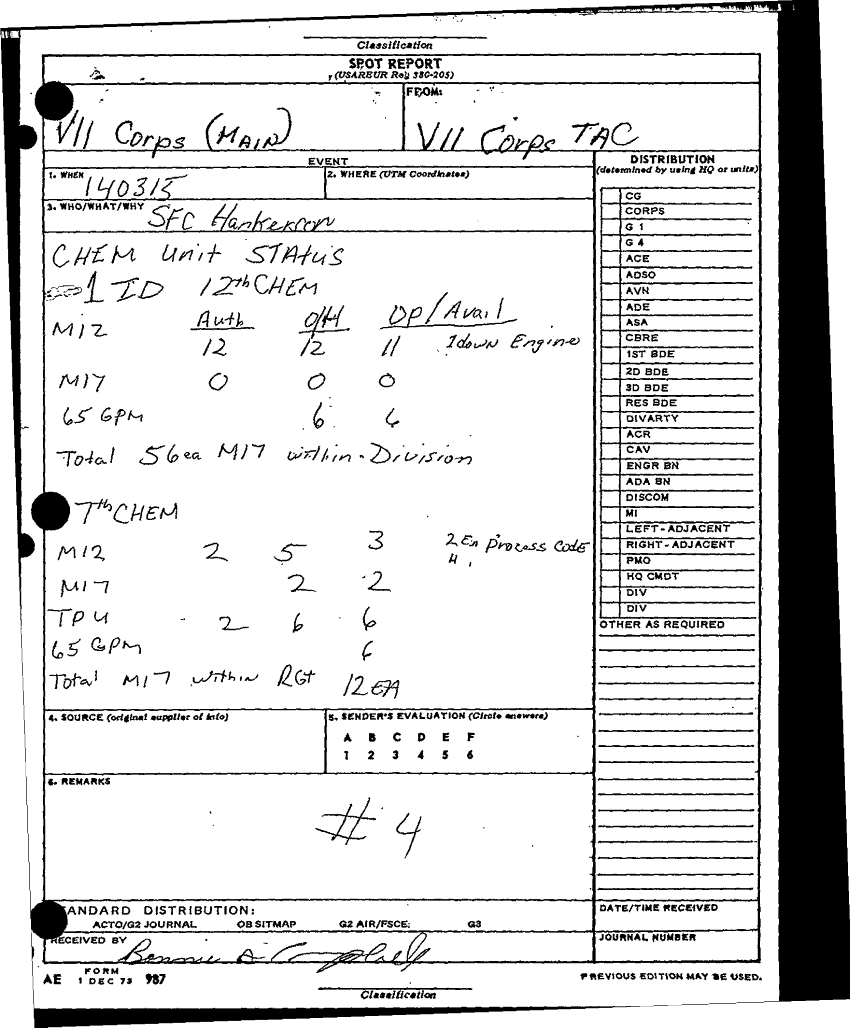 Classification
SPOT REPORT
(USAREUR Reg 380-205)
FROM:
VII Corps (MAIN)
VII Corps TAC
EVENT
DISTRIBUTION
(determined by using HQ or units)
1. WHEN 140315
2. WHERE (UTM Coordinates)
3. WHO/WHAT/WHY SFC Hankerson
CHEM Unit STAtUS
1 ID 12th CHEM
Auth O/H OP/Avail
M12 12 12 11 1 down Engine
M17 0 0 0
65 GPM 6 6
Total 56ea M17 within-Division
7th CHEM
M12 2 5 3 2 EA Process Code
H
M17 2 2
TPU 2 6 6
65 GPM 6
Total M17 within RGt 12 EA
CG
CORPS
G 1
G 4
ACE
ADSO
AVN
ADE
ASA
CBRE
1ST BDE
2D BDE
3D BDE
RES BDE
DIVARTY
ACR
CAV
ENGR BN
ADA BN
DISCOM
MI
LEFT-ADJACENT
RIGHT-ADJACENT
PMO
HQ CMDT
DIV
DIV
OTHER AS REQUIRED
4. SOURCE (original supplier of info)
5. SENDER'S EVALUATION (Circle answers)
A B C D E F
1 2 3 4 5 6
6. REMARKS
# 4
STANDARD DISTRIBUTION:
ACTO/G2 JOURNAL OB SITMAP G2 AIR/FSCE: G3
DATE/TIME RECEIVED
RECEIVED BY Bonnie A Campbell
JOURNAL NUMBER
AE FORM 1 DEC 73 987
PREVIOUS EDITION MAY BE USED.
Classification